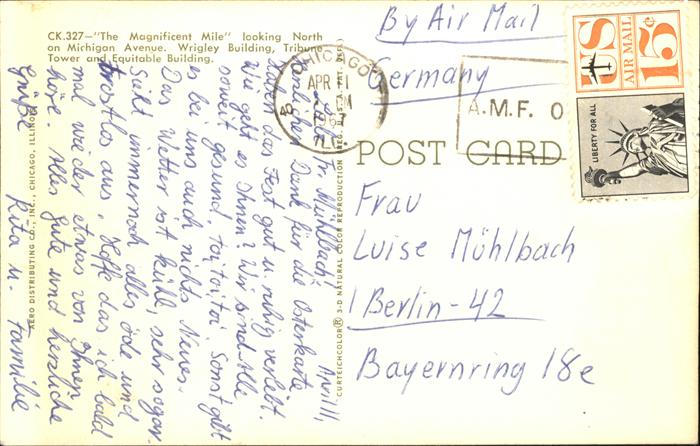 CK.327—"The Magnificent Mile" looking North
on Michigan Avenue. Wrigley Building, Tribune
Tower and Equitable Building.
By Air Mail
Germany
CHICAGO
APR 11
ILL.
A.M.F. O
US
AIR MAIL
15¢
LIBERTY FOR ALL
POST CARD
Frau
Luise Mühlbach
1 Berlin-42
Bayernring 18e
April 11,
Fr. Mühlbach!
Dank für die Osterkarte
haben das Fest gut u. ruhig verlebt.
Wie geht es Ihnen? Wir sind Alle
soweit gesund, toi, toi, toi. Sonst gibt
es bei uns auch nichts Neues.
Das Wetter ist kühl, sehr sogar.
Sieht immernoch alles öde und
trostlos aus. Hoffe das ich bald
mal wieder etwas von Ihnen
höre. Alles Gute und herzliche
Grüße
Rita u. Familie
AERO DISTRIBUTING CO., INC., CHICAGO, ILLINOIS
CURTEICHCOLOR® 3-D NATURAL COLOR REPRODUCTION (REG. U.S. PAT. OFF.)